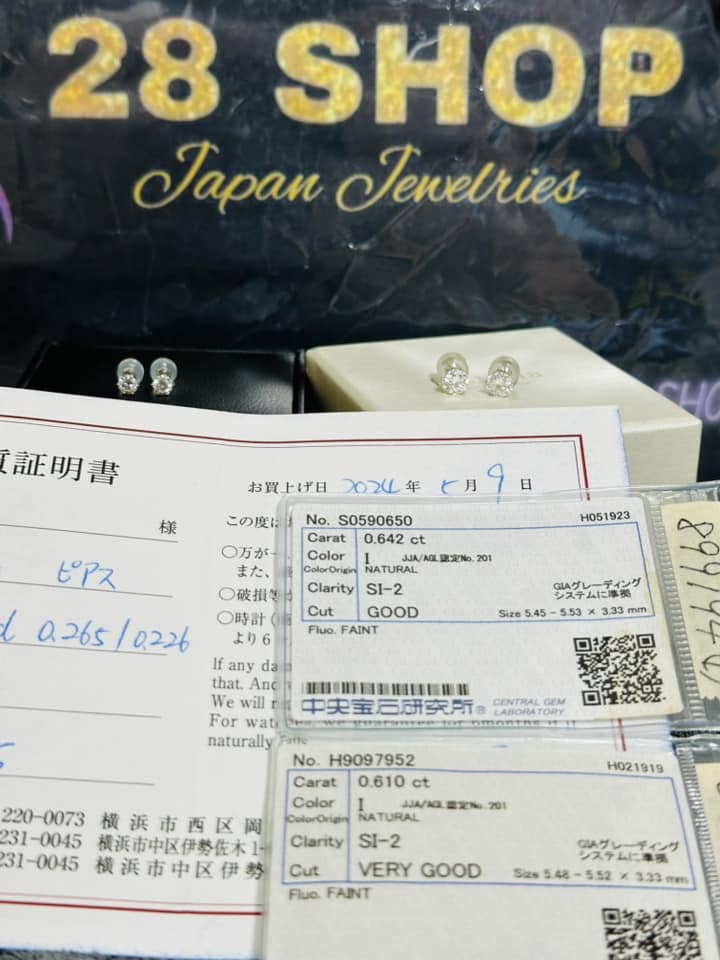 28 SHOP
Japan Jewelries
質証明書
お買上げ日 2024年 5月 9日
様
この度は
ピアス
○万が一
また、
○破損等
○時計(
より6
d 0.265/0.226
If any da
that. And
We will r
For watches, we guarantee for 6months if it
naturally fails
220-0073 横浜市西区岡
231-0045 横浜市中区伊勢佐木1-
231-0045 横浜市中区伊勢
No. S0590650 H051923
Carat 0.642 ct
Color I JJA/AGL認定No.201
ColorOrigin NATURAL
Clarity SI-2 GIAグレーディング
システムに準拠
Cut GOOD Size 5.45 - 5.53 × 3.33 mm
Fluo. FAINT
中央宝石研究所® CENTRAL GEM
LABORATORY
No. H9097952 H021919
Carat 0.610 ct
Color I JJA/AGL認定No.201
ColorOrigin NATURAL
Clarity SI-2 GIAグレーディング
システムに準拠
Cut VERY GOOD Size 5.48 - 5.52 × 3.33 mm
Fluo. FAINT
SHO